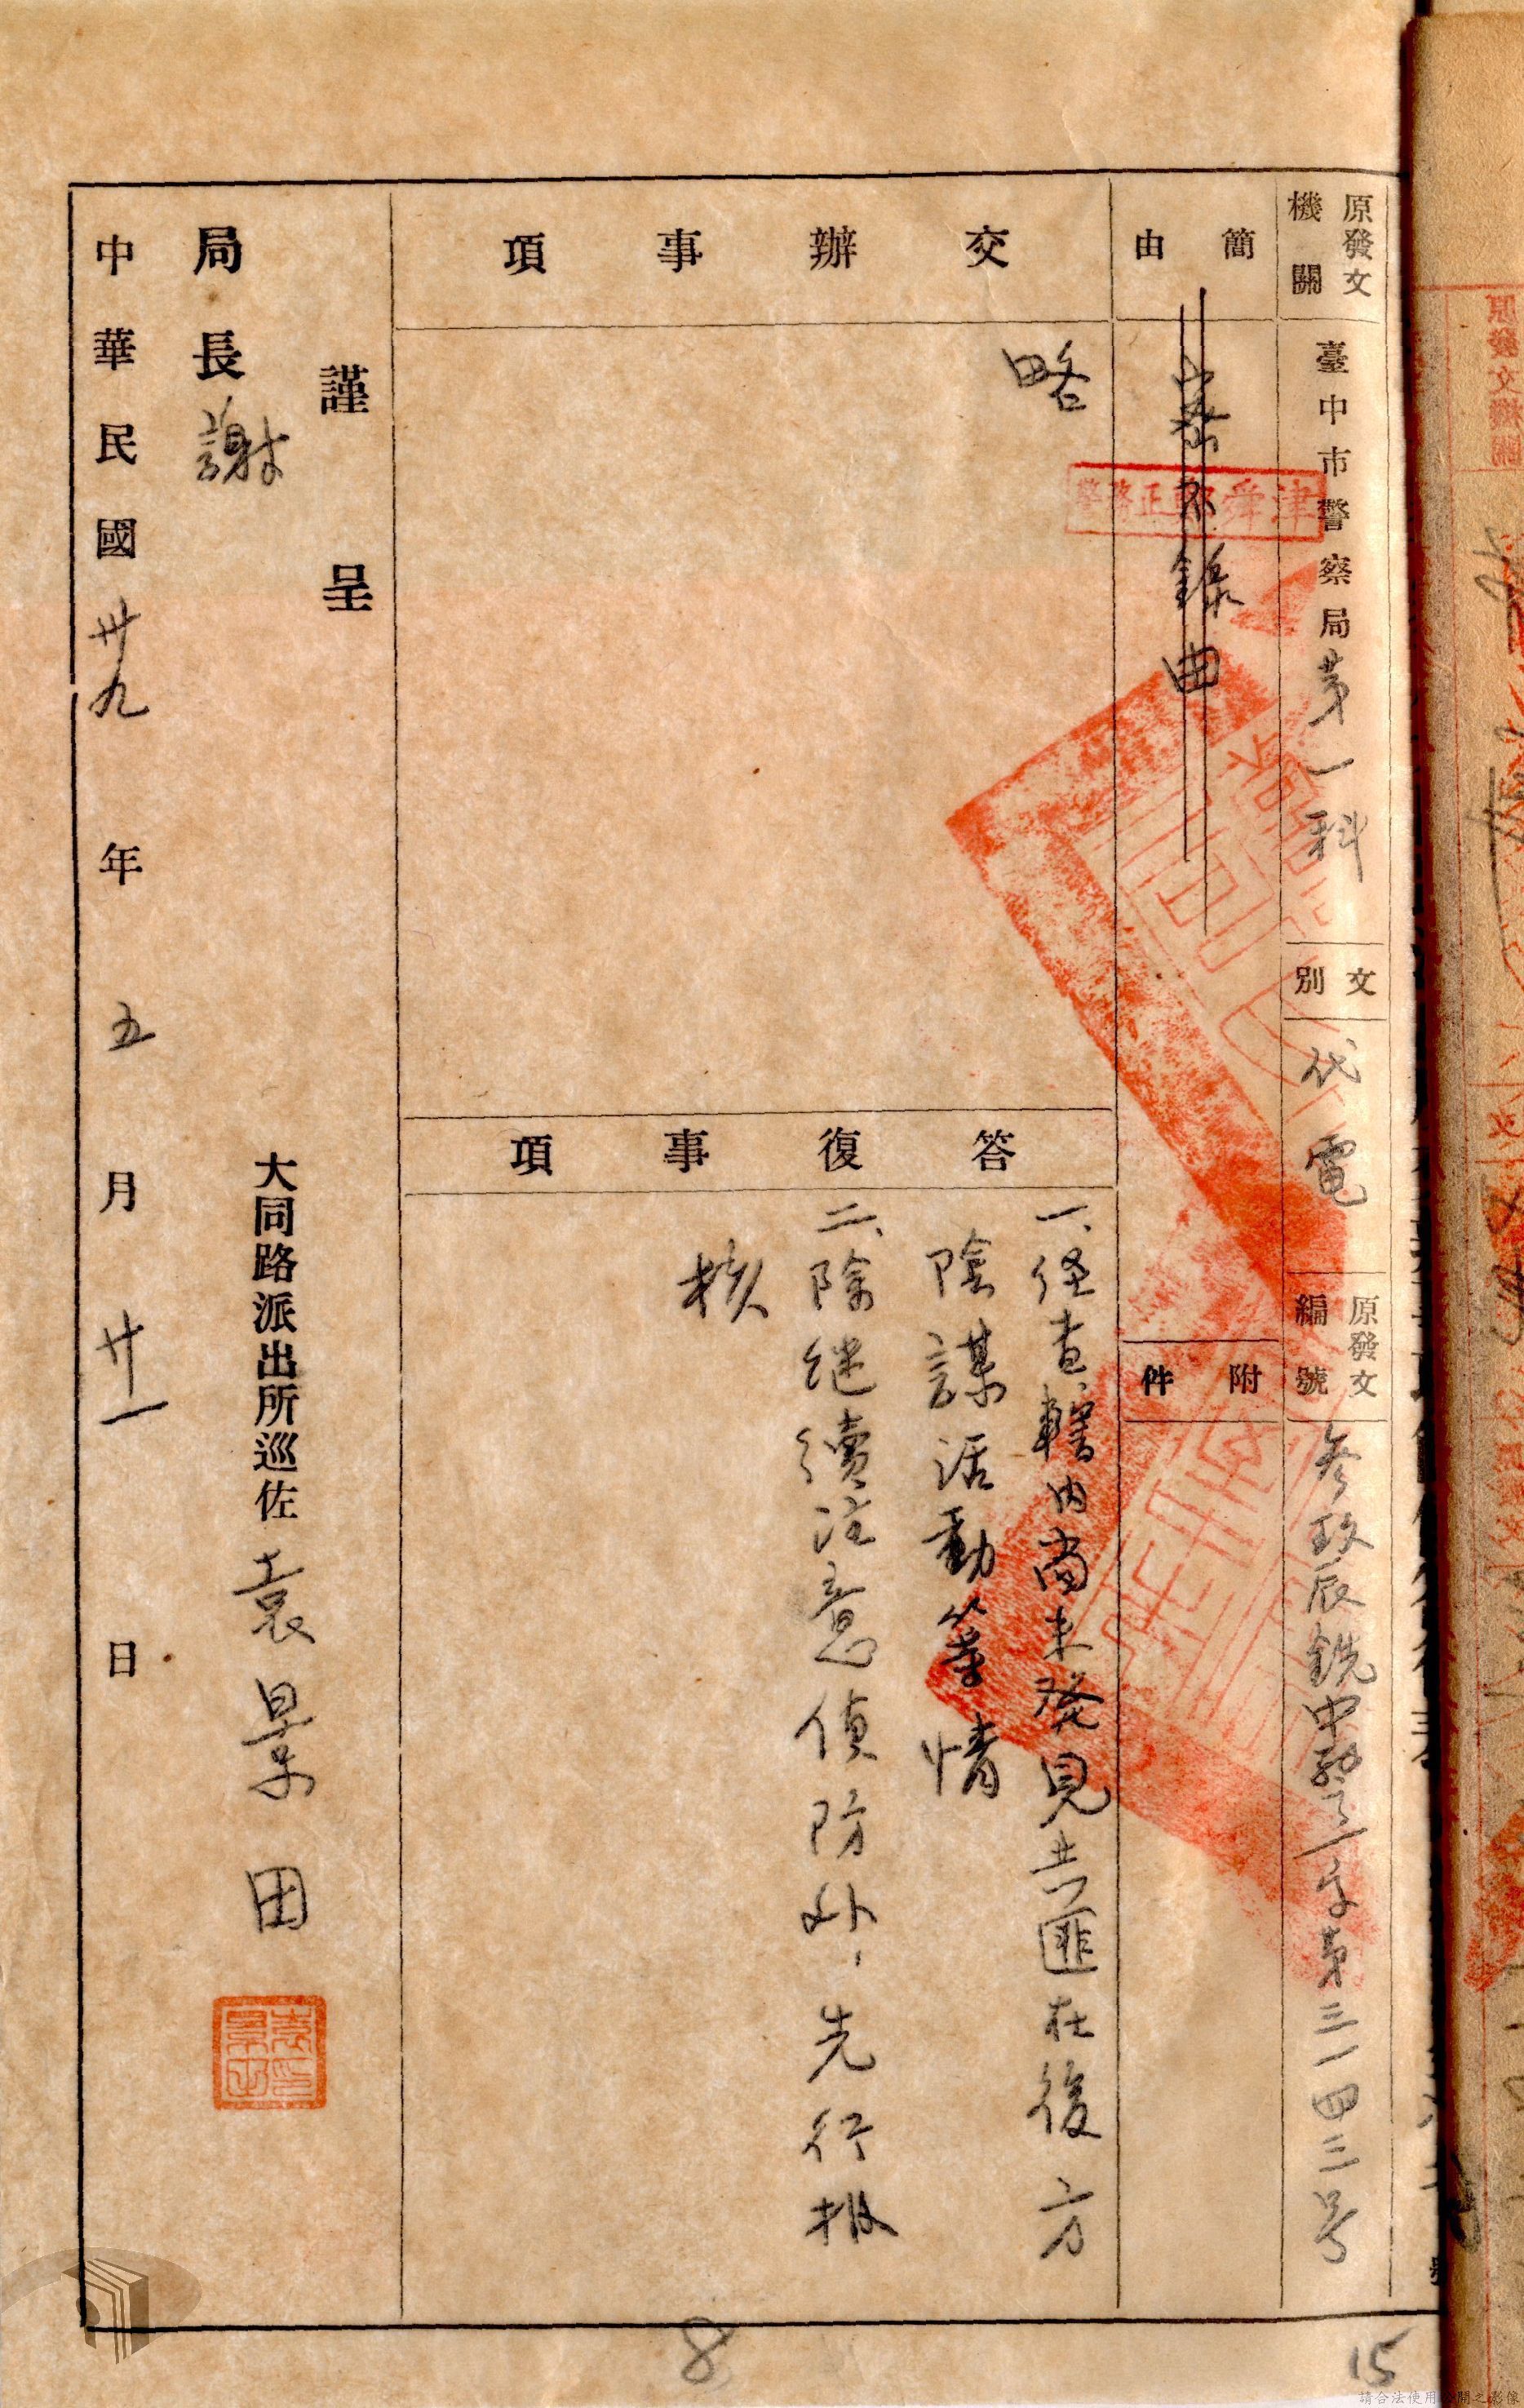 原發文機關
臺中市警察局第一科
文別
代電
原發文編號
參玖辰銑中警一字第三一四三号
簡由
密不錄由
附件
交辦事項
略
答復事項
一、经查轄内尚未発見共匪在後方
陰謀活動等情
二、除继續注意偵防外、先行报
核
謹呈
局長謝
大同路派出所巡佐袁景田
中華民國卅九年五月廿一日
8
15
原發文機關